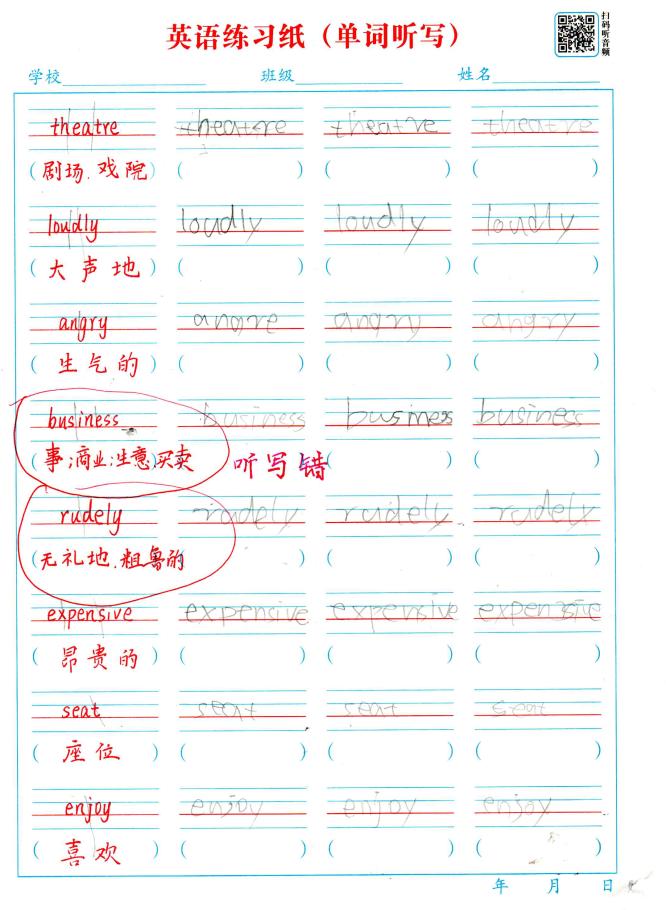 英语练习纸（单词听写）
扫码听音频
学校 班级 姓名
theatre theatre theatre theatre
（剧场.戏院）（ ）（ ）（ ）
loudly loudly loudly loudly
（大声地）（ ）（ ）（ ）
angry angre angry angry
（生气的）（ ）（ ）（ ）
business business business business
（事;商业;生意;买卖 听写错（ ）（ ）
rudely rudely rudely rudely
（无礼地.粗鲁的（ ）（ ）（ ）
expensive expensive expensive expensive
（昂贵的）（ ）（ ）（ ）
seat seat seat seat
（座位）（ ）（ ）（ ）
enjoy enjoy enjoy enjoy
（喜欢）（ ）（ ）（ ）
年 月 日